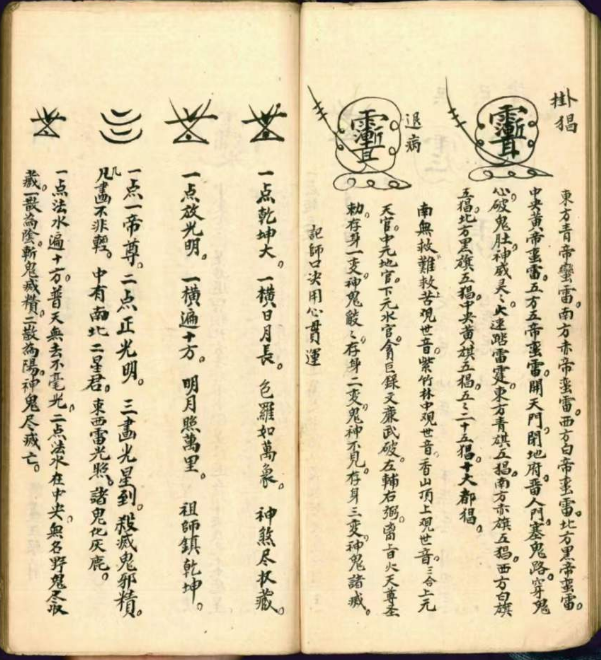 掛猖
東方青帝蠻雷南方赤帝蛮雷西方白帝蛮雷北方黑帝蛮雷
中央黃帝蛮雷五方五帝蛮雷開天門閉地府晋人門塞鬼路穿鬼
心破鬼肚神威灵々火速踏雷霆東方青旗五猖南方赤旗五猖西方白旗
五猖北方黑旗五猖中央黃旗五猖五々二十五猖十大都猖
退病
南無救難救苦現世音紫竹林中观世音香山頂上观世音三合上元
天官中元地官下元水官貪巨錄文廉武破左輔右弼 火天尊圣
勅存身一变神鬼 々存身二変鬼神不見存身三变神鬼諸滅
記師口决用心貫運
一点乾坤大 一横日月長 包羅如萬象 神煞尽収藏
一点放光明 一横遍十方 明月照萬里 祖師鎮乾坤
一点一帝尊 二点正光明 三畫光星到 殺滅鬼邪精
凡畫不非輕 中有南北二星君 東西雷光照 諸鬼化灰塵
一点法水遍十方普天無去不毫光二点法水在中央無名野鬼尽収
藏一散為陰斬鬼滅精二散為陽神鬼尽滅亡